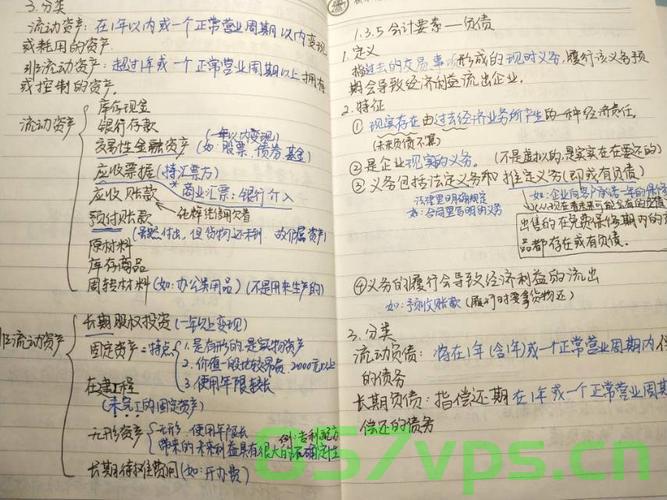 3. 分类
流动资产：在1年以内或一个正常营业周期以内变现
或耗用的资产
非流动资产：超过1年或一个正常营业周期以上拥有
或控制的资产
流动资产
库存现金
银行存款 (一年以内变现)
交易性金融资产 (如：股票、债券、基金)
应收票据 (持汇票方)
应收账款 商业汇票：银行介入
预付账款
(虽然付出，但货物还未到 故仍属资产)
原材料
库存商品
周转材料 (如：办公类用品) (不是用来生产的)
非流动资产
长期股权投资 (一年以上变现)
固定资产 = 特点 1. 是有形的是实物资产
2. 价值一般比较昂贵 2000元以上
3. 使用年限较长
在建工程
(未完工的固定资产)
无形资产 无形、使用年限长 例：专利、配方
带来的未来利益具有很大的不确定性
长期待摊费用 (如：开办费)
1.3.5 会计要素——负债
1. 定义
指过去的交易事项形成的现时义务，履行该义务预
期会导致经济利益流出企业。
2. 特征
① 现实存在由过去经济业务所产生的一种经济责任。
(未来负债不算)
② 是企业现实的义务。 (不是虚拟的，是实实在在要还的)
③ 义务包括法定义务和推定义务 (即或有负债)
法律里明确规定
如：合同里写明的义务
如：企业向客户承诺一年的保
出售的在免费保修期内的
品都存在或有负债。
④ 义务的履行会导致经济利益的流出
如：预收账款 (履行时要拿货物还)
3. 分类
流动负债：将在1年(含1年)或一个正常营业周期内偿
的债务
长期负债：指偿还期在1年或一个正常营业周期
偿还的债务
857vps.cn